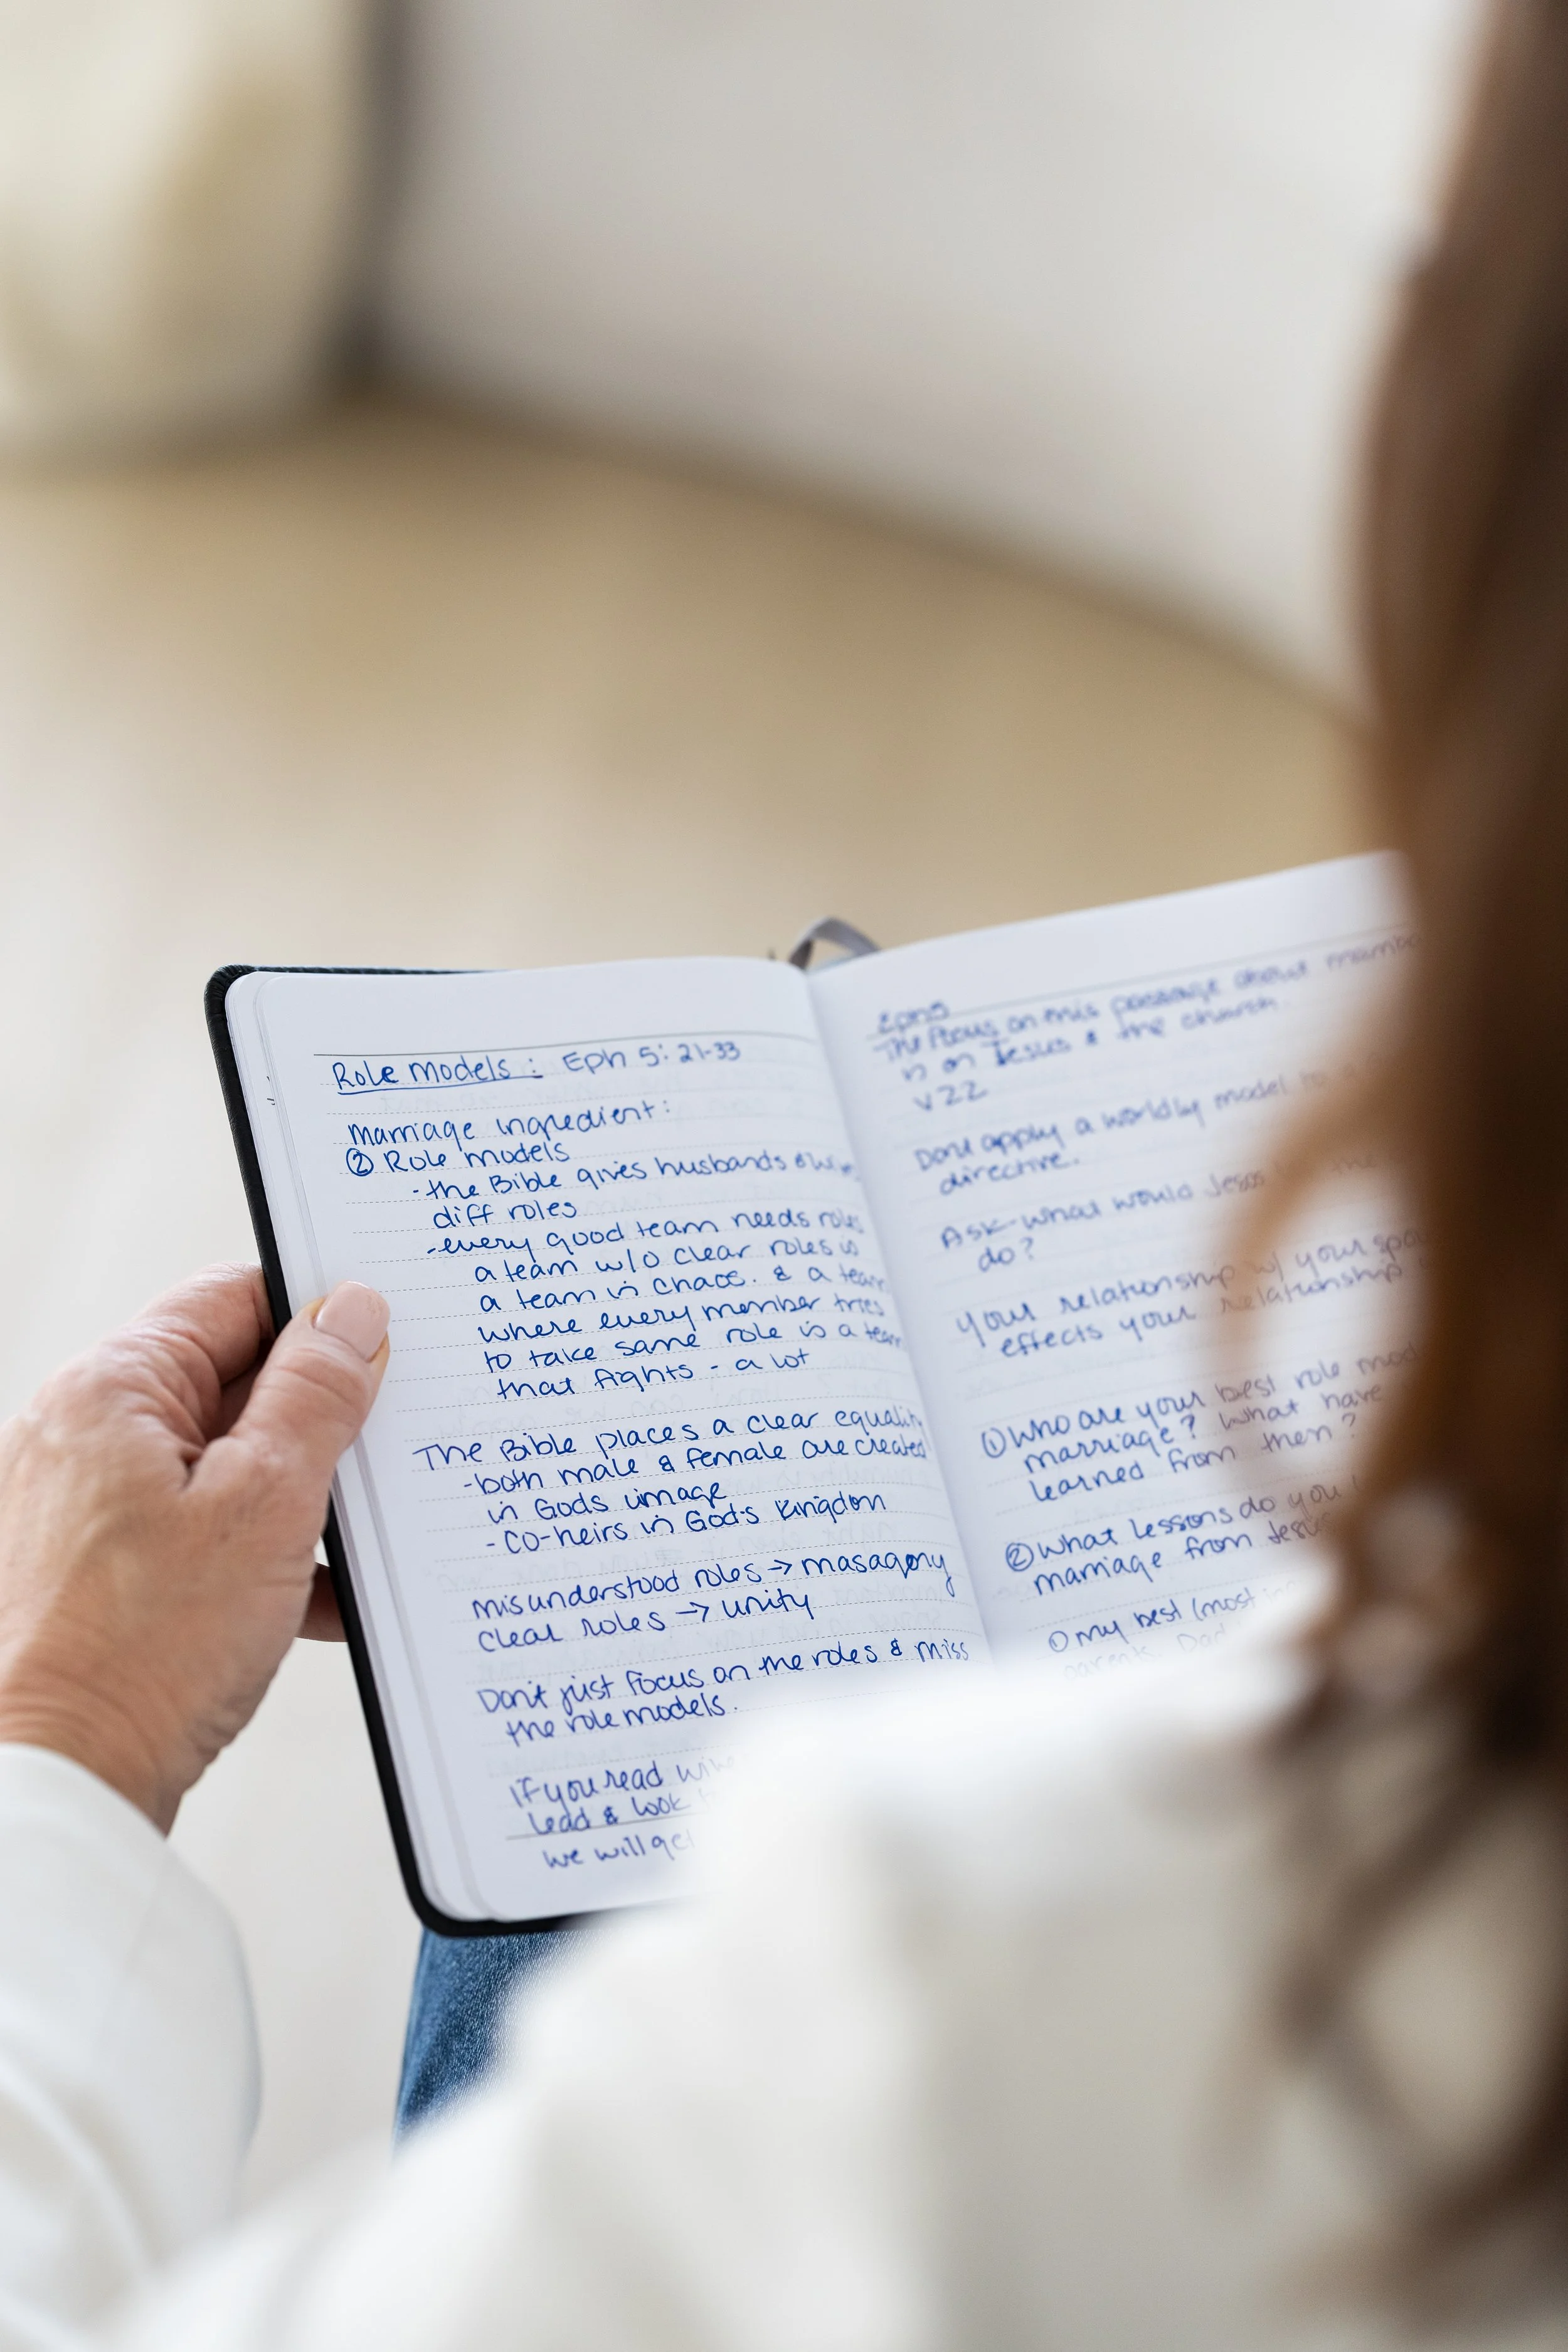 Role Models : Eph 5: 21-33
Marriage ingredient:
② Role models
- the Bible gives husbands &
diff roles
- every good team needs roles
a team w/o clear roles is
a team in chaos. & a team
where every member tries
to take same role is a team
that fights - a lot
The Bible places a clear equality
- both male & female are created
in Gods image
- co-heirs in God's Kingdom
misunderstood roles → masagony
clear roles → unity
Don't just focus on the roles & miss
the role models.
If you read
lead & look
we will get
Eph5
The focus on this passage about
is on Jesus & the church.
v 22
Dont apply a worldly model to
directive.
Ask - what would Jesus
do?
Your relationship w/ your
effects your relationship
① Who are your best role
marriage? What have
learned from them?
② What lessons do you
marriage from Jesus
① My best (most
parents. Dad